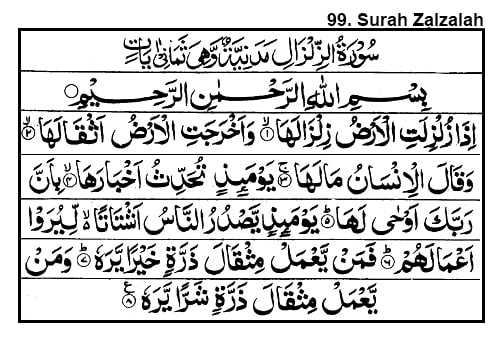 99. Surah Zalzalah
سُوْرَةُ الزِّلْزَالِ مَدَنِيَّةٌ وَّهِيَ ثَمَانِيْ اٰيَاتٍ
بِسْمِ اللّٰهِ الرَّحْمٰنِ الرَّحِيْمِ ○
اِذَا زُلْزِلَتِ الْاَرْضُ زِلْزَالَهَا ۙ﴿۱﴾ وَاَخْرَجَتِ الْاَرْضُ اَثْقَالَهَا ۙ﴿۲﴾
وَقَالَ الْاِنْسَانُ مَا لَهَا ۚ﴿۳﴾ يَوْمَئِذٍ تُحَدِّثُ اَخْبَارَهَا ۙ﴿۴﴾ بِاَنَّ
رَبَّكَ اَوْحٰى لَهَا ؕ﴿۵﴾ يَوْمَئِذٍ يَّصْدُرُ النَّاسُ اَشْتَاتًا ۙ۬ لِّيُرَوْا
اَعْمَالَهُمْ ؕ﴿۶﴾ فَمَنْ يَّعْمَلْ مِثْقَالَ ذَرَّةٍ خَيْرًا يَّرَهٗ ؕ﴿۷﴾ وَمَنْ
يَّعْمَلْ مِثْقَالَ ذَرَّةٍ شَرًّا يَّرَهٗ ﴿۸﴾ ع